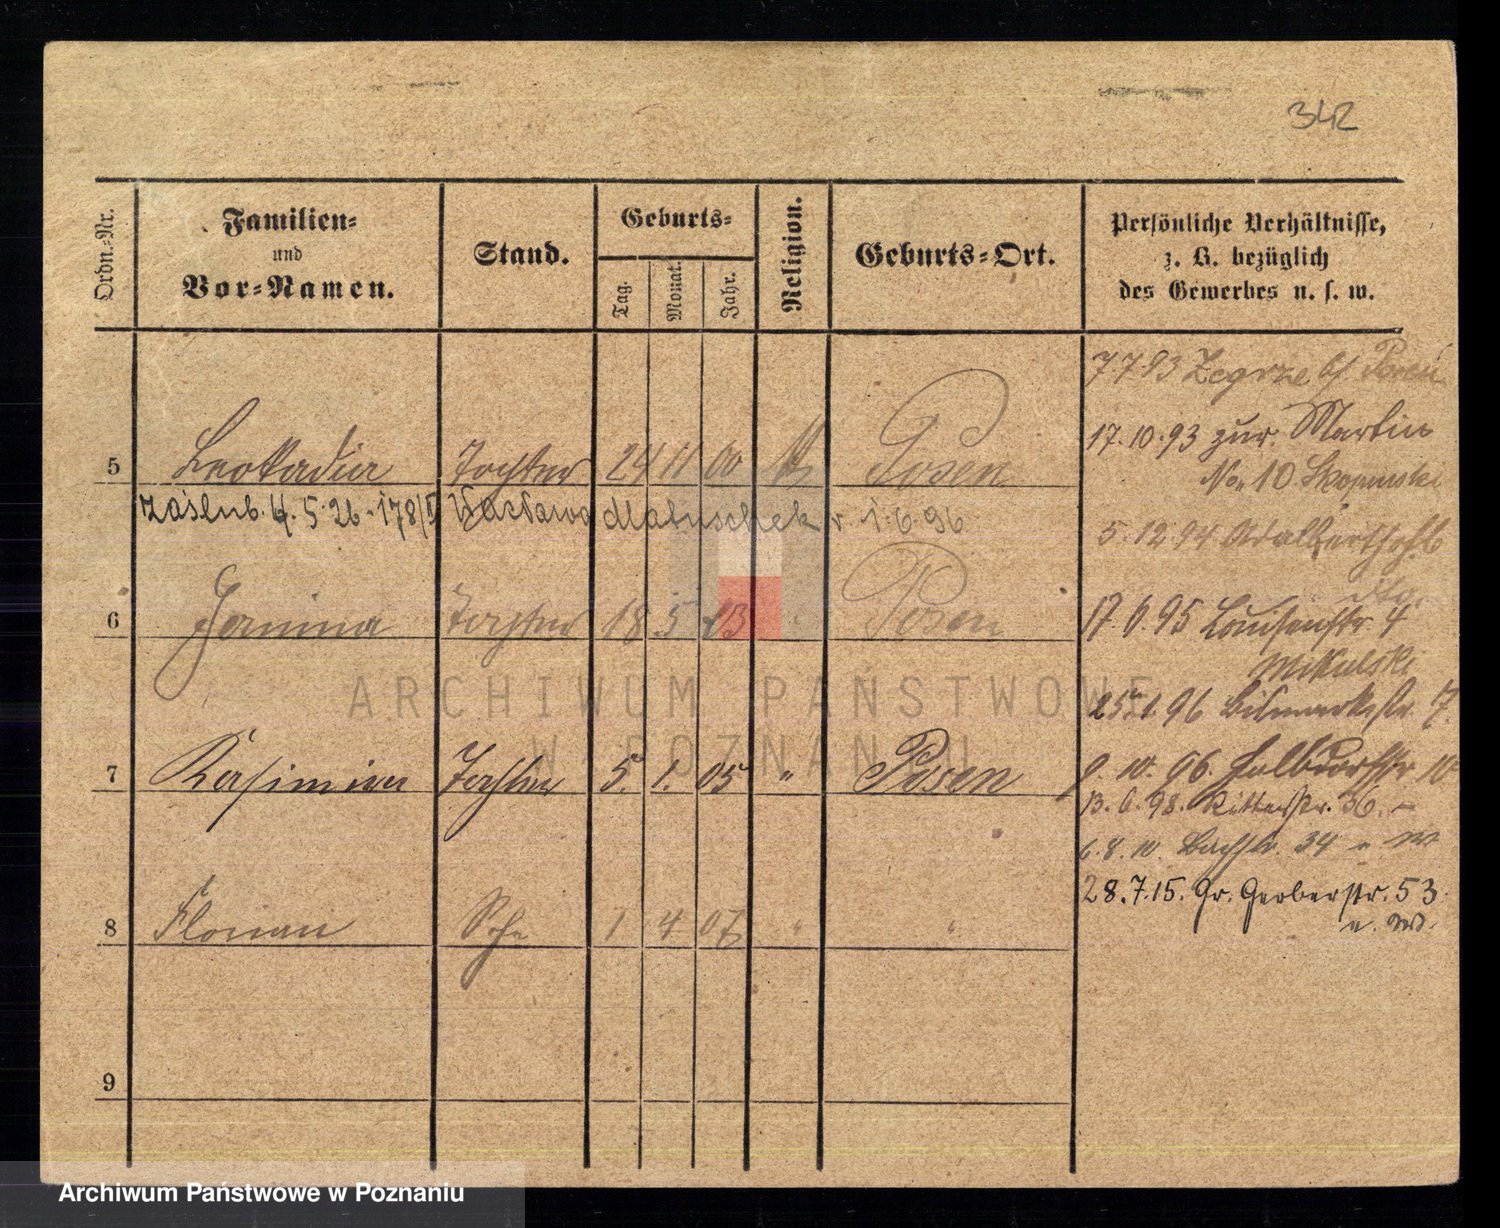 342
Ordn.-Nr.
Familien-
und
Vor-Namen.
Stand.
Geburts-
Tag.
Monat.
Jahr.
Religion.
Geburts-Ort.
Persönliche Verhältnisse,
z. B. bezüglich
des Gewerbes u. s. w.
7 7 93 Zegrze b/ Posen
17.10.93 zur. Martin
No. 10 Skopinski
5 Leokadia Tochter 24 11 00 Posen
zaślub. 4.5.26 - 178/ Wacława Matuschek 1.6.96
5.12.94
6 Janina Tochter 18 5 Posen
17.6.95 Louisenstr 4
Mikulski
25.1.96 Bismarckstr 7.
7 Kasimira Tochter 5. 1. 05 " Posen
9.10.96. Halbdorfstr 10
13.6.98. Ritterstr. 36.
6.8.10. Bachstr. 34
28.7.15. Gr. Gerberstr. 53
8 Florian Sohn 1 4 07 " "
9
ARCHIWUM PAŃSTWOWE
W POZNANIU
Archiwum Państwowe w Poznaniu